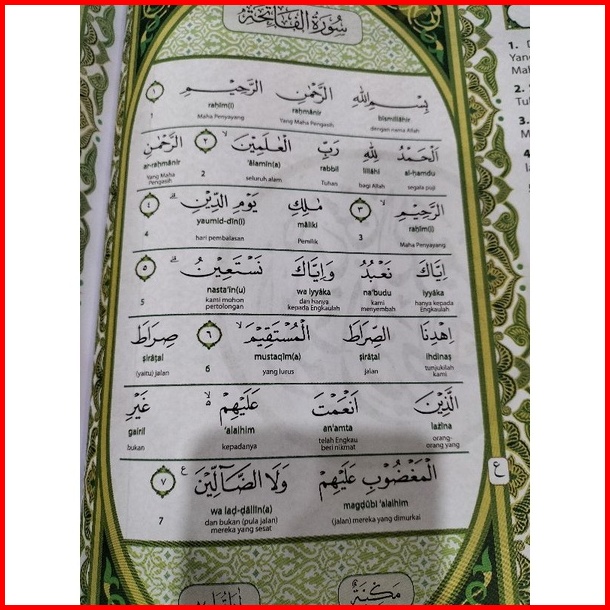 سُورَةُ الْفَاتِحَةِ
بِسْمِ اللّٰهِ الرَّحْمٰنِ الرَّحِيْمِ ١
bismillāhir raḥmānir raḥīm(i)
dengan nama Allah Yang Maha Pengasih Maha Penyayang 1
اَلْحَمْدُ لِلّٰهِ رَبِّ الْعٰلَمِيْنَ ۙ ٢ الرَّحْمٰنِ
al-ḥamdu lillāhi rabbil 'ālamīn(a) ar-raḥmānir
segala puji bagi Allah Tuhan seluruh alam 2 Yang Maha Pengasih
الرَّحِيْمِ ۙ ٣ مٰلِكِ يَوْمِ الدِّيْنِ ۗ ٤
raḥīm(i) māliki yaumid-dīn(i)
Maha Penyayang 3 Pemilik hari pembalasan 4
اِيَّاكَ نَعْبُدُ وَاِيَّاكَ نَسْتَعِيْنُ ۗ ٥
iyyāka na'budu wa iyyāka nasta'īn(u)
hanya kepada Engkaulah kami menyembah dan hanya kepada Engkaulah kami mohon pertolongan 5
اِهْدِنَا الصِّرَاطَ الْمُسْتَقِيْمَ ۙ ٦ صِرَاطَ
ihdinaṣ ṣirāṭal mustaqīm(a) ṣirāṭal
tunjukilah kami jalan yang lurus 6 (yaitu) jalan
الَّذِيْنَ اَنْعَمْتَ عَلَيْهِمْ ەۙ غَيْرِ
lażīna an'amta 'alaihim gairil
orang-orang yang telah Engkau beri nikmat kepadanya bukan
الْمَغْضُوْبِ عَلَيْهِمْ وَلَا الضَّاۤلِّيْنَ ࣖ ٧
magḍūbi 'alaihim wa laḍ-ḍāllīn(a)
(jalan) mereka yang dimurkai dan bukan (pula jalan) mereka yang sesat 7
ع
مَكِّيَّةٌ
1.
Yang
Mah
2.
Tuh
3.
M
4